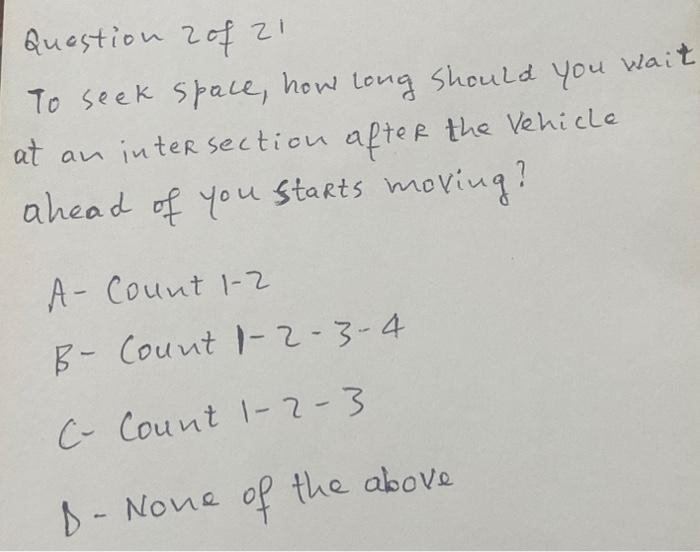 Question 2 of 21
To seek space, how long should you wait
at an intersection after the Vehicle
ahead of you starts moving?
A- Count 1-2
B- Count 1-2-3-4
C- Count 1-2-3
D- None of the above